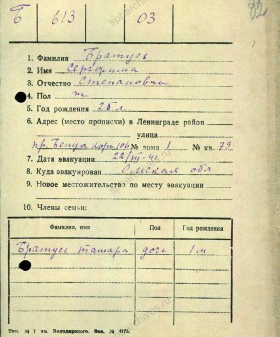 Б 613 03
1. Фамилия Братусь
2. Имя Серафима
3. Отчество Степановна
4. Пол ж
5. Год рождения 25 л
6. Адрес (место прописки) в Ленинграде район
улица
пр. № дома 1 № кв. 79
7. Дата эвакуации 22/VII-41
8. Куда эвакуирован обл
9. Новое местожительство по месту эвакуации
10. Члены семьи:
Фамилия, имя Пол Год рождения
Братусь Тамара дочь 1 м
Тип. № 1 им. Володарского. Зак. № 4175.